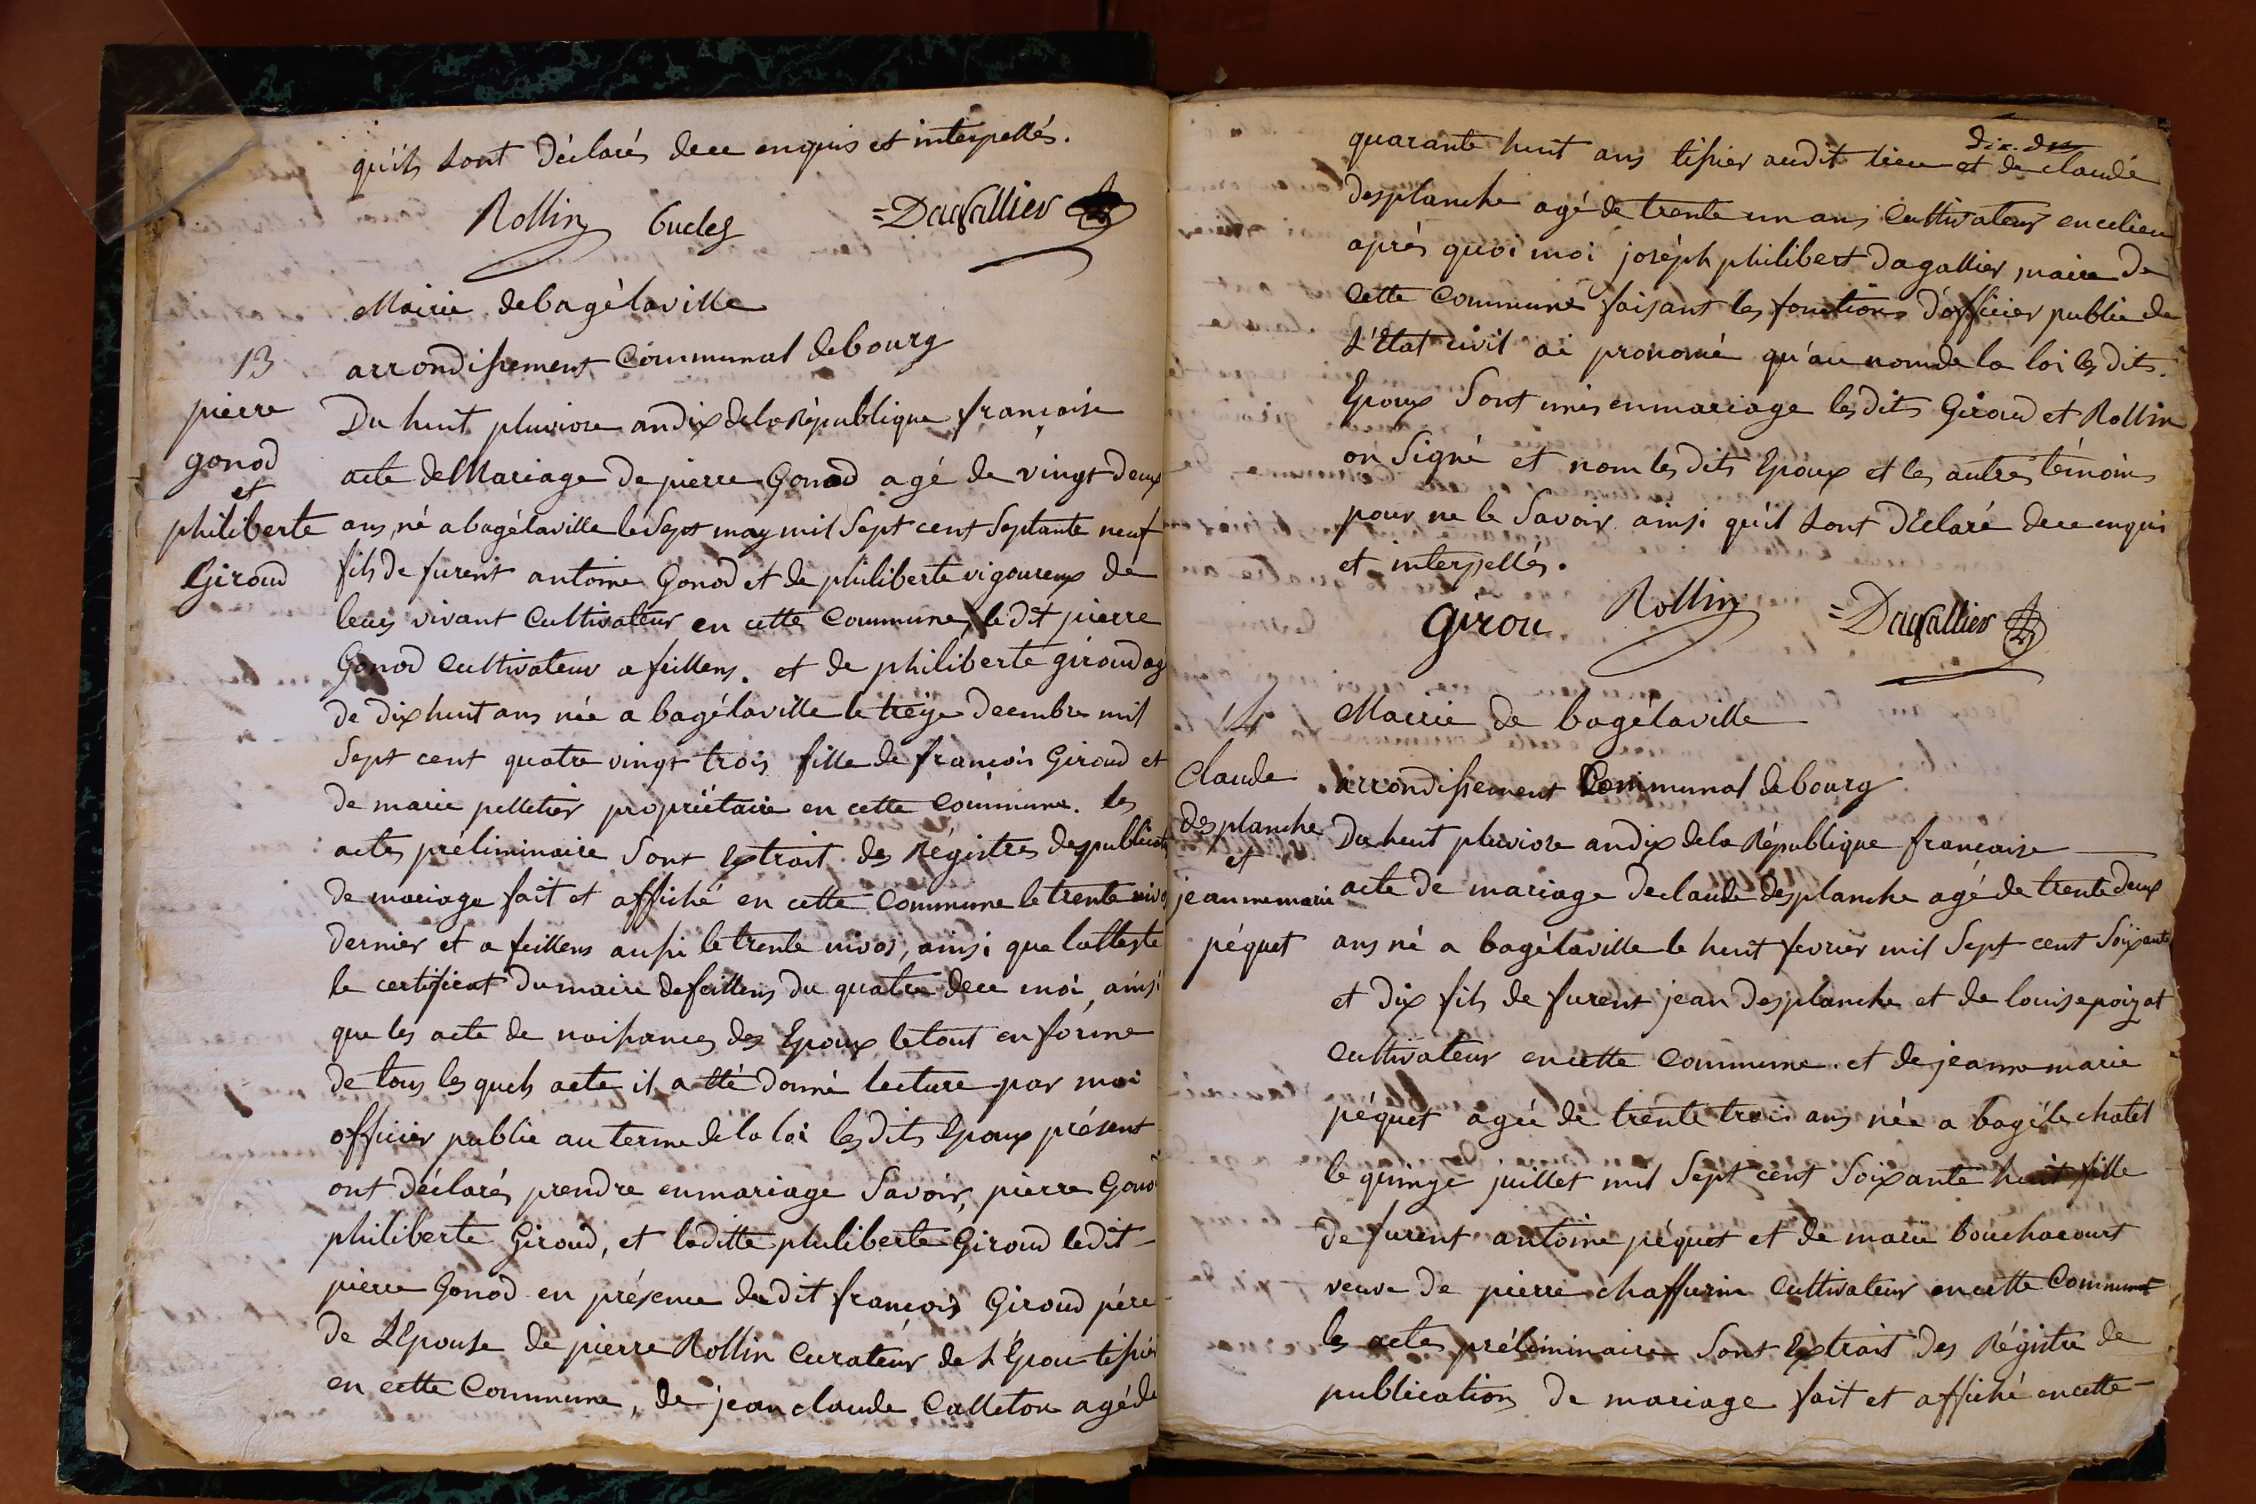 qu'ils sont déclarés de ce enquis et interpellés.
Rollin Gucles =Dagallier
Mairie de bagélaville
13
arrondissement Communal de bourg
pierre
gonod
et
philiberte
Giroud
Du huit pluviose an dix de la République françoise
acte de Mariage de pierre Gonod agé de vingt deux
ans, né a bagélaville le Sept may mil Sept cent Septante neuf
fils de furent antoine Gonod et de philiberte vigoureux de
leurs vivant Cultivateur en cette Commune, le dit pierre
Gonod Cultivateur a feillens. et de philiberte giroud agé
de dix huit ans née a bagélaville le treize decembre mil
Sept cent quatre vingt trois fille de françois Giroud et
de marie pelletier propriétaire en cette Commune. les
actes préliminaire Sont Extrait des Régistres des publications
de mariage fait et affiché en cette Commune le trente nivos
dernier et a feillens aussi le trente nivos, ainsi que latteste
le certificat du maire de feillens du quatre de ce moi, ainsi
que les acte de naissances des Epoux le tout en forme
de tous les quels acte il a été donné lecture par moi
officier public au terme de la loi les dits Epoux présent
ont déclarés prendre en mariage Savoir, pierre Gonod
philiberte Giroud, et laditte philiberte Giroud le dit
pierre Gonod en présence du dit françois Giroud pére
de L'Epouse de pierre Rollin Curateur de L'Epou tissier
en cette Commune, de jean claude Calleton agé de
quarante huit ans tissier audit lieu et de claude
desplanche agé de trente un ans Cultivateur en ce lieu
aprés quoi moi joséph philibert dagallier, maire de
Cette Commune faisant les fonctions d'officier public de
L'état civil ai pronomé qu'au nom de la loi les dits
Epoux Sont unis en mariage les dits Giroud et Rollin
on Signé et nom les dits Epoux et les autres témoins
pour ne le Savoir ainsi qu'il sont déclaré de ce enqui
et interpellés.
Girou Rollin =Dagallier
14
Mairie de bagélaville
Claude
desplanche
et
jeanne marie
péquet
arrondissement Communal de bourg
Du huit pluviose an dix de la République francaise
acte de mariage de claude desplanche agé de trente deux
ans né a bagélaville le huit fevrier mil Sept cent Soixante
et dix fils de furent jean desplanche et de louise poizat
Cultivateur en cette Commune. et de jeanne marie
péquet agée de trente trois ans née a bagé le chatel
le quinze juillet mil Sept cent Soixante huit fille
de furent antoine péquet et de marie bouchacourt
veuve de pierre chaffurin Cultivateur en cette Commune
les actes préliminaire Sont Extrait des Régistre de
publication de mariage fait et affiché en cette